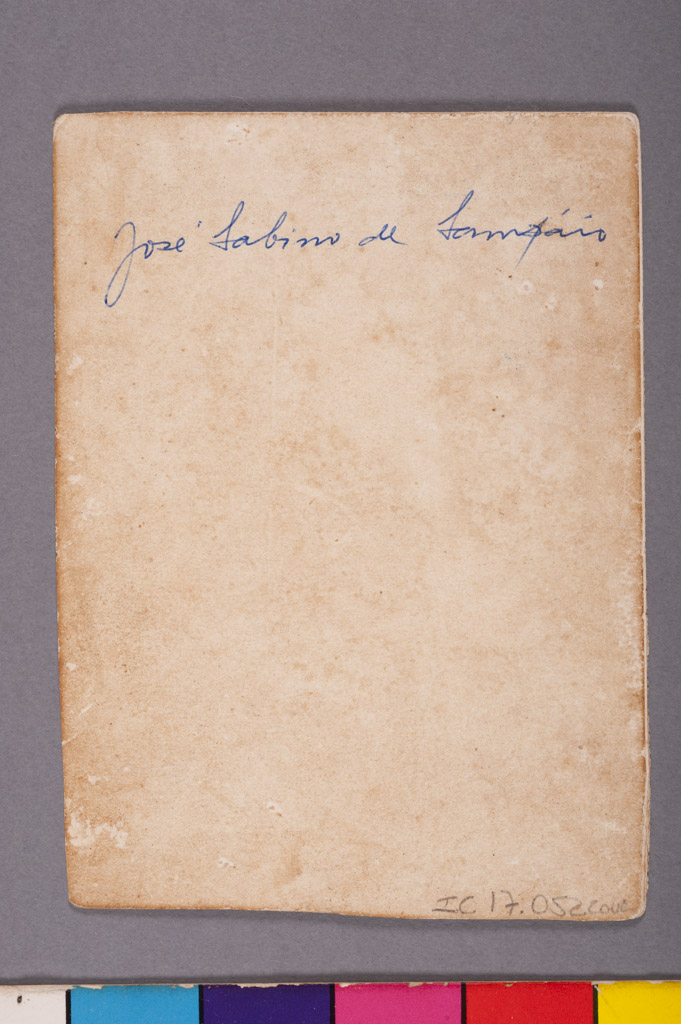 José Sabino de Sampáio
IC 17.052